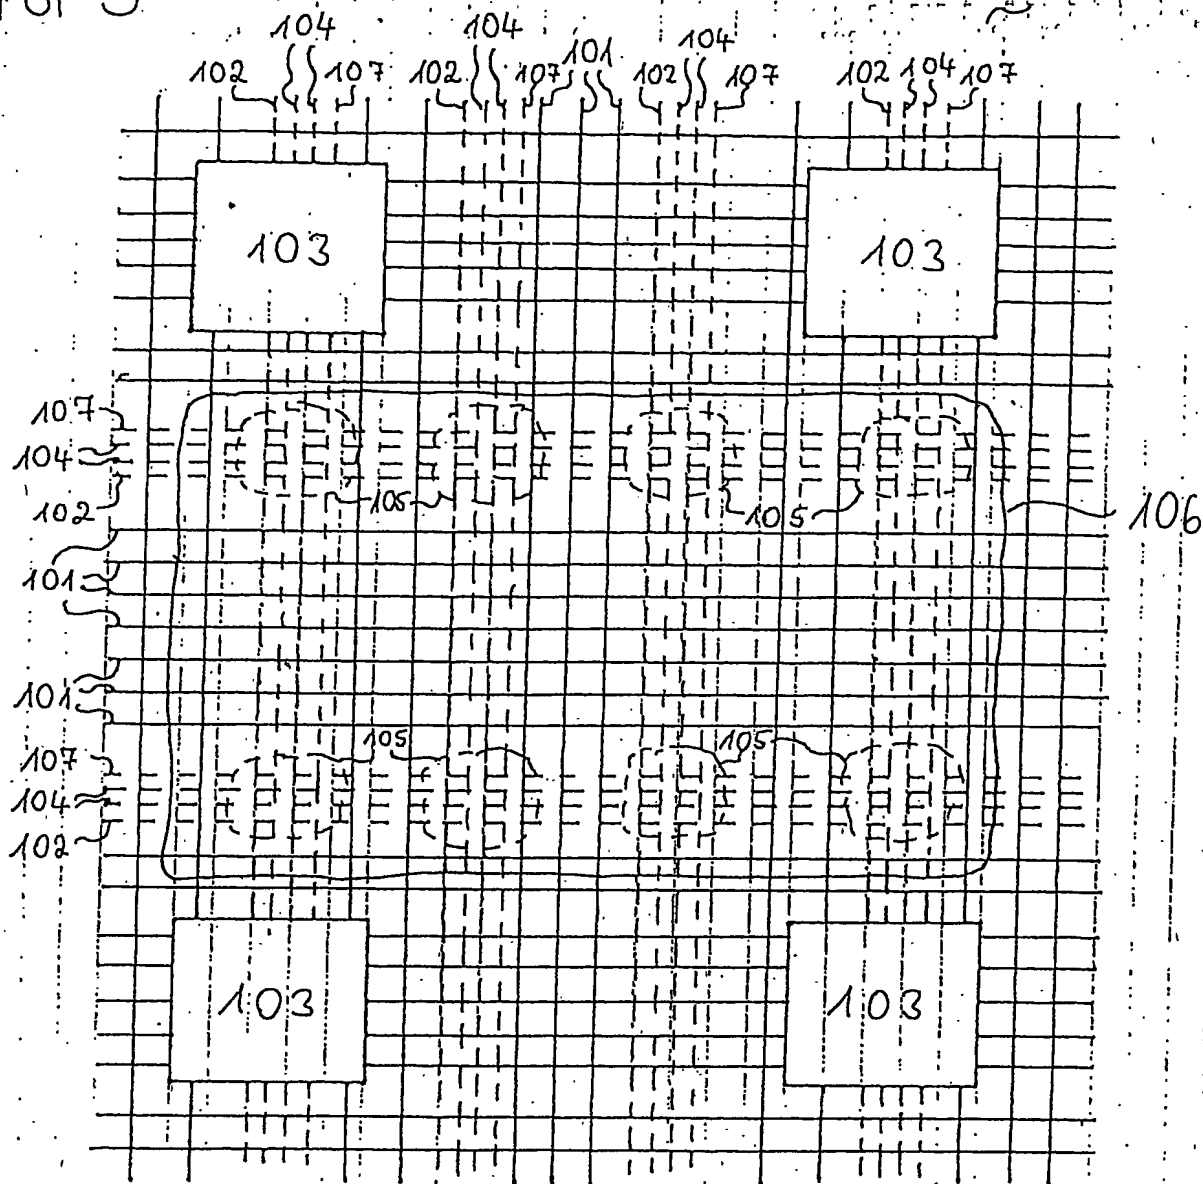 104 104 104
102 107 102 107 101 102 107 102 104 107
103 103
107
104
102
105 105
106
101
101
105 105
107
104
102
103 103